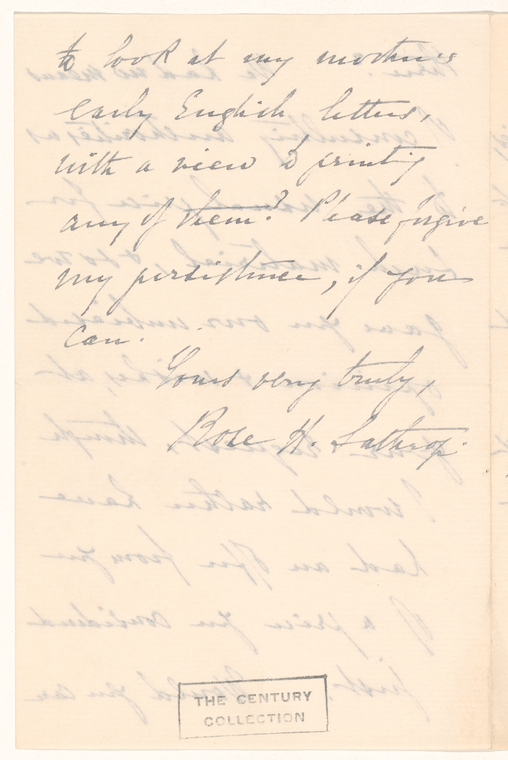 to look at my mother's
early English letters,
with a view to printing
any of them? Please forgive
my persistence, if you
can.
Yours very truly,
Rose H. Lathrop.
THE CENTURY
COLLECTION